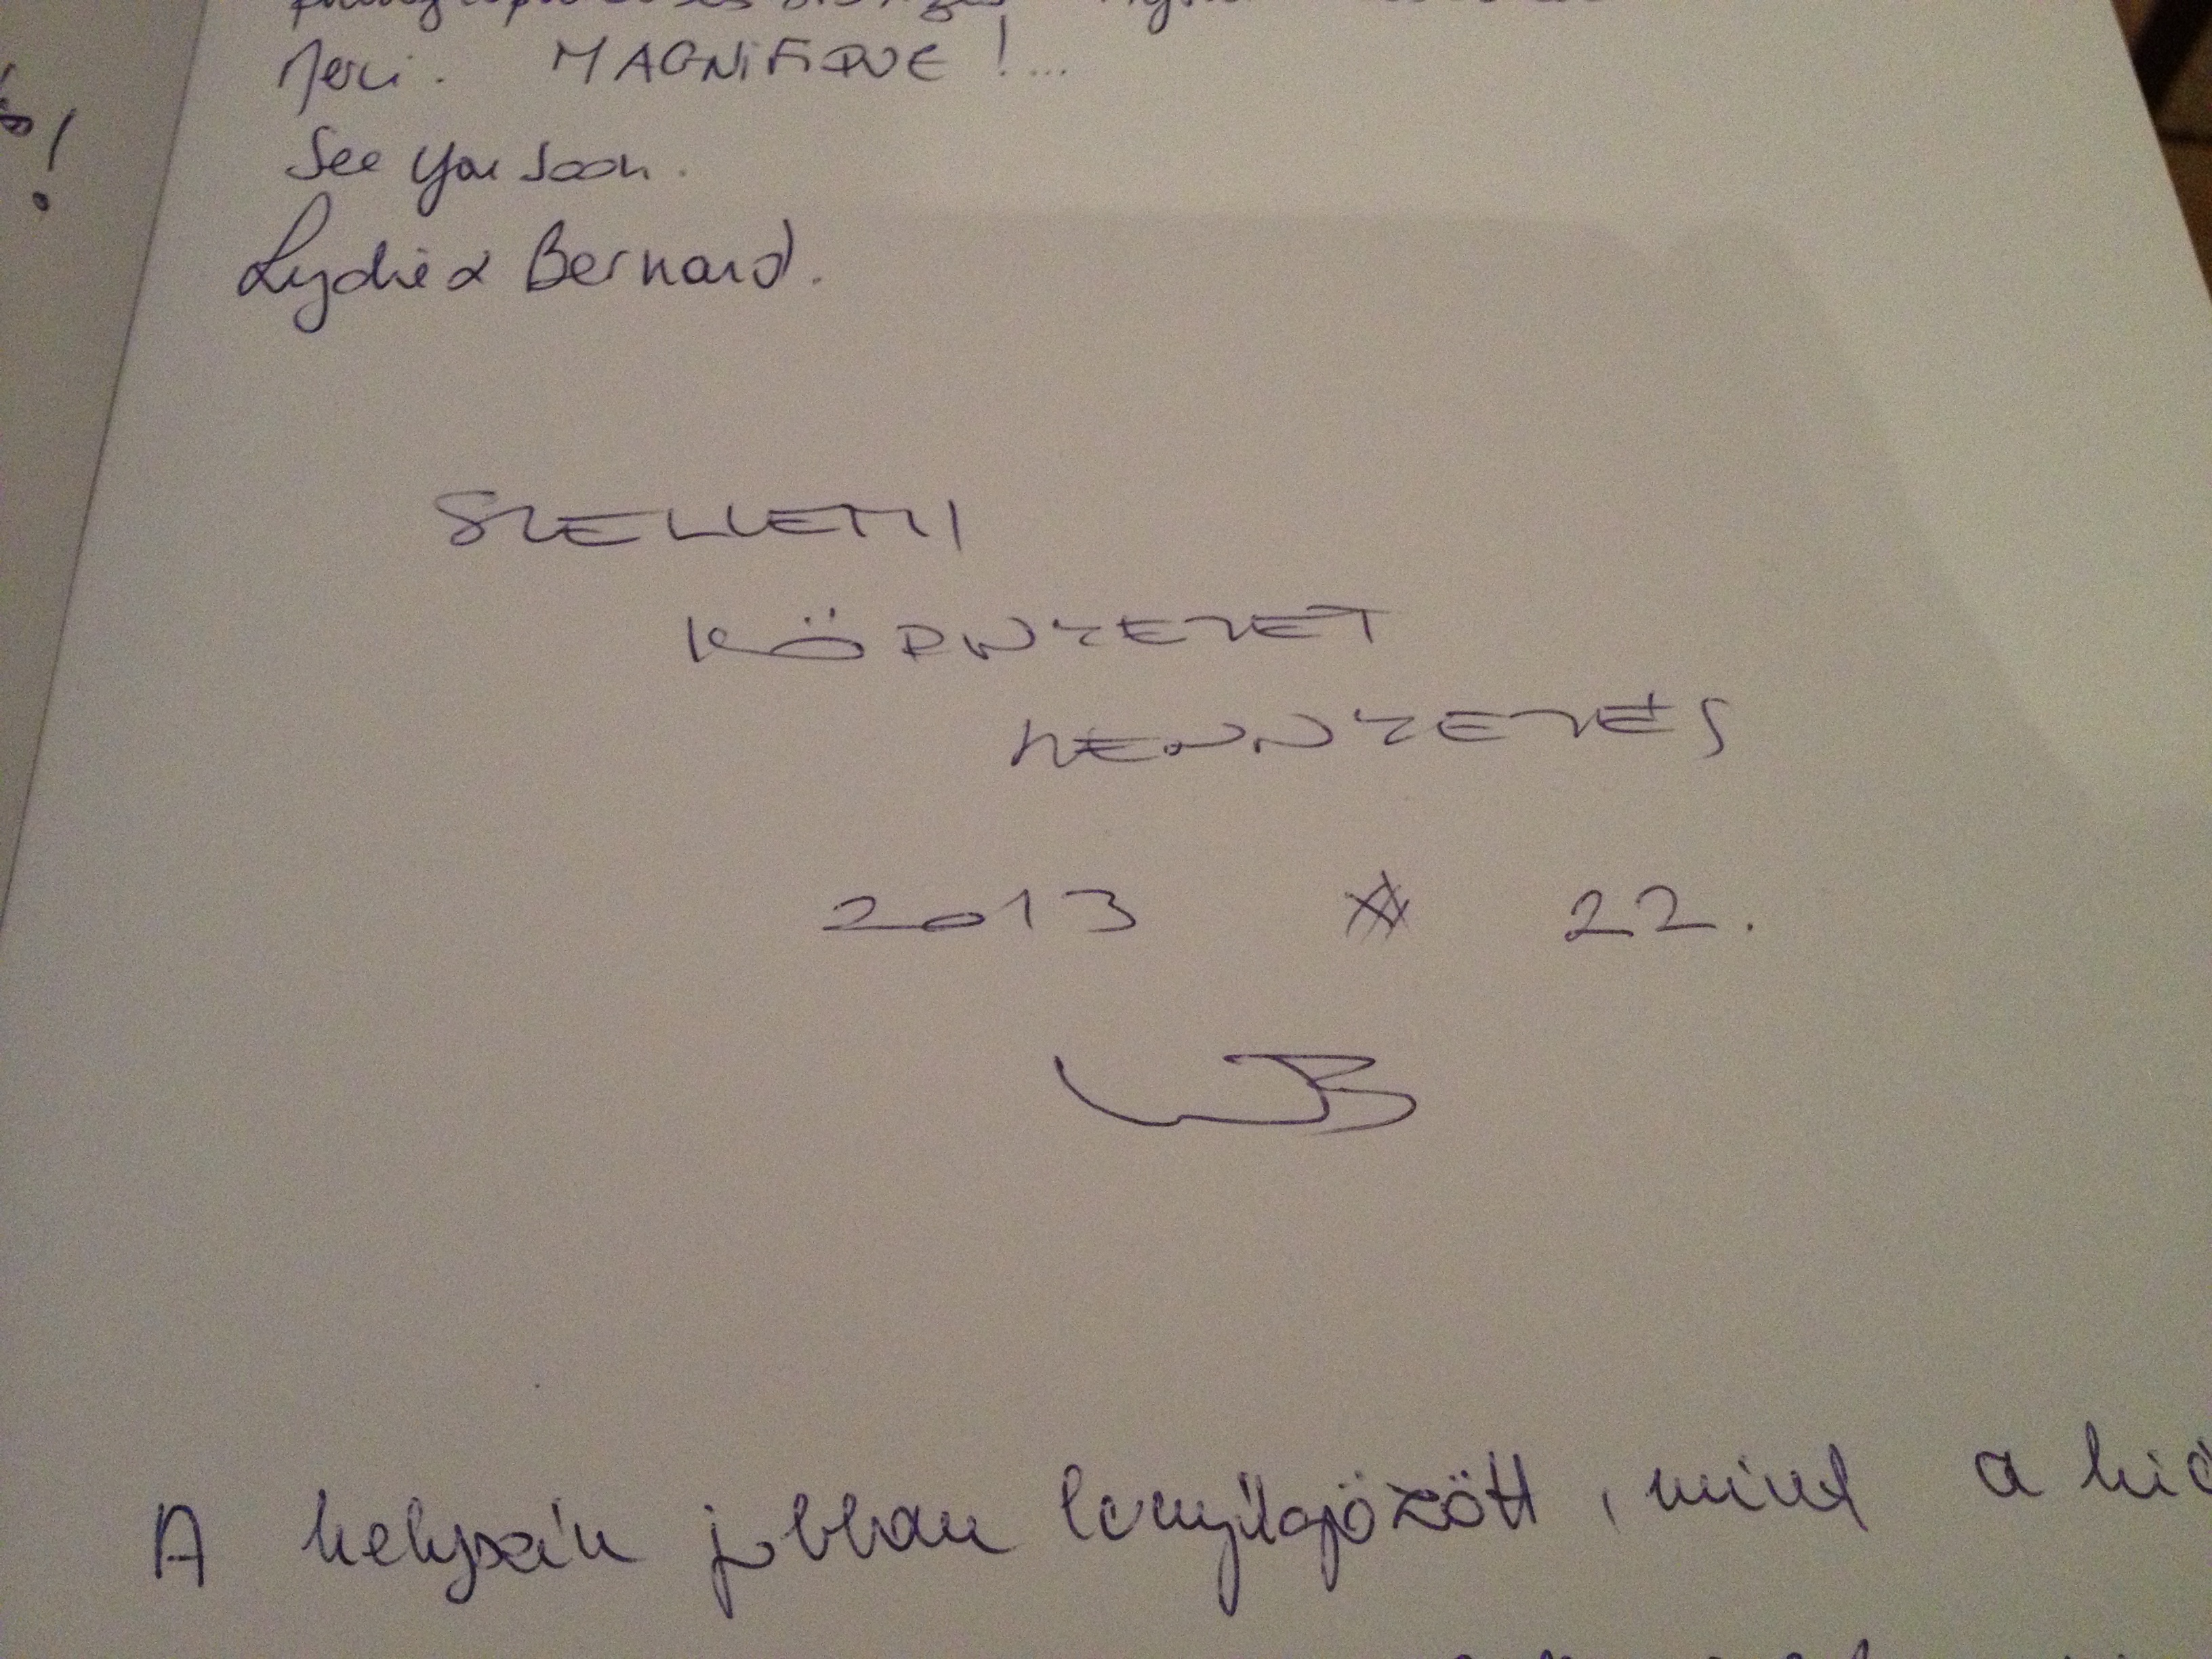 Merci. MAGNIFIQUE !...
See you soon.
Lydie & Bernard.
SZELLEMI
KÖRNYEZET
SZENNYEZÉS
2013 22.
A helyszín jobban lenyűgözött, mint a